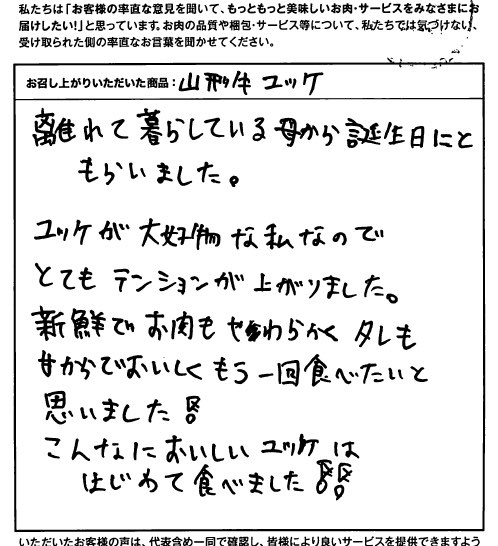 私たちは「お客様の率直な意見を聞いて、もっともっと美味しいお肉・サービスをみなさまにお
届けしたい!」と思っています。お肉の品質や梱包・サービス等について、私たちでは気づけない、
受け取られた側の率直なお言葉を聞かせてください。
お召し上がりいただいた商品:山形牛ユッケ
離れて暮らしている母から誕生日にと
もらいました。
ユッケが大好物な私なので
とてもテンションが上がりました。
新鮮でお肉もやわらかくタレも
甘からでおいしくもう一回食べたいと
思いました!
こんなにおいしいユッケは
はじめて食べました!!
いただいたお客様の声は、代表含め一同で確認し、皆様により良いサービスを提供できますよう